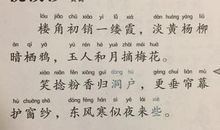 lóu jiǎo chū xiāo yì lǚ xiá dàn huáng yáng liǔ
楼角初销一缕霞，淡黄杨柳
àn qī yā yù rén hé yuè zhāi méi huā
暗栖鸦，玉人和月摘梅花。
xiào niǎn fěn xiāng guī dòng hù gèng chuí lián mù
笑捻粉香归洞户，更垂帘幕
hù chuāng shā dōng fēng hán sì yè lái xiē
护窗纱，东风寒似夜来些。